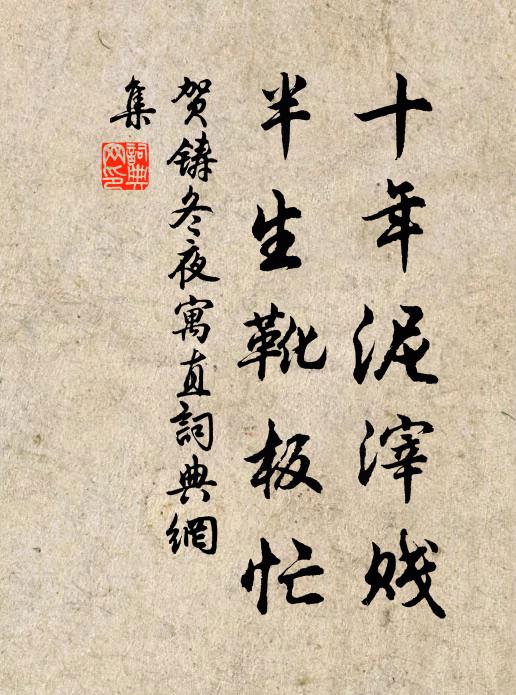 十年泥滓贱
半生靴板忙
贺铸冬夜寓直詞典網
集
詞典網印